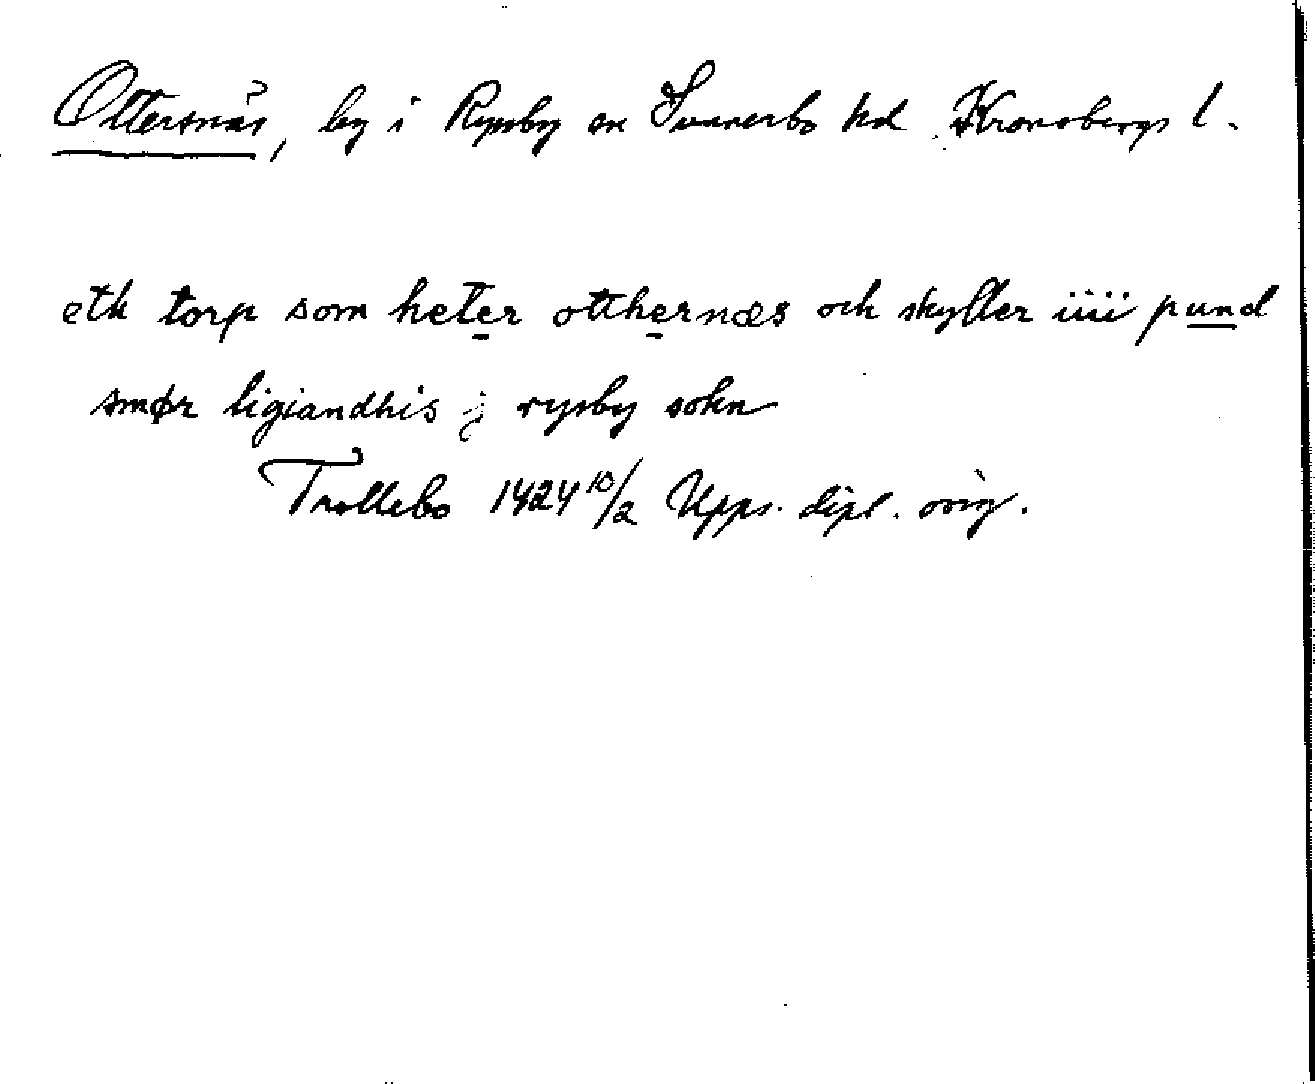 Otternäs, by i Ryssby sn Sunnerbo hd Kronobergs l.
eth torp som heter otthernæs och skyller iiii pund
smør ligiandhis j rysby sokn
Trollebo 1424 10/2 Upps. dipl. orig.